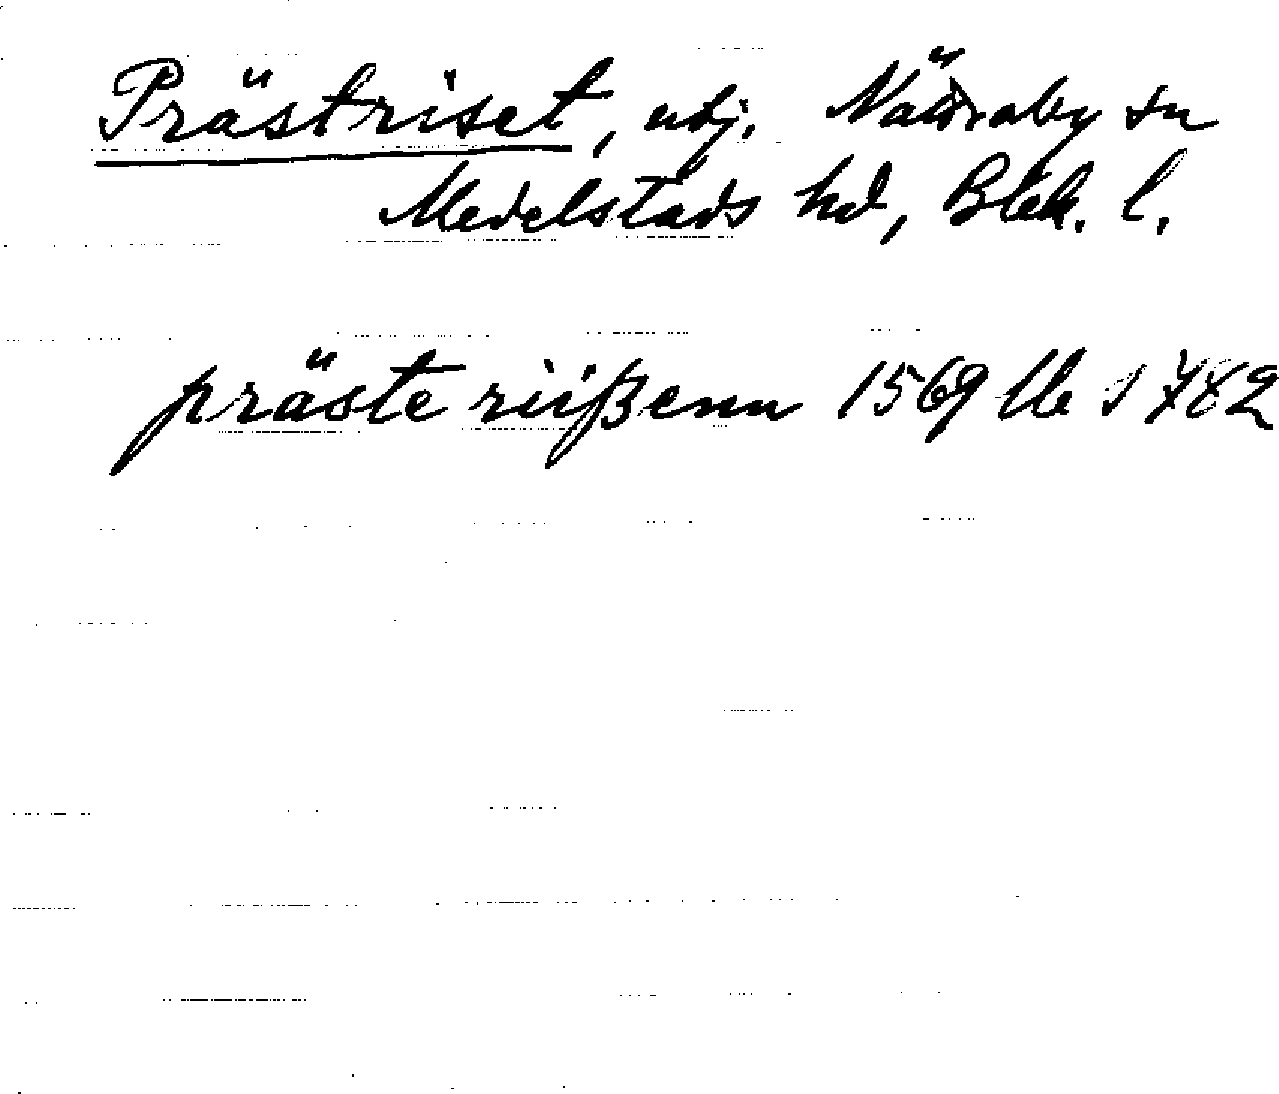 Prästriset, ubj. Nättraby sn
Medelstads hd, Blek. l.
präste riißenn 1569 lle s 782